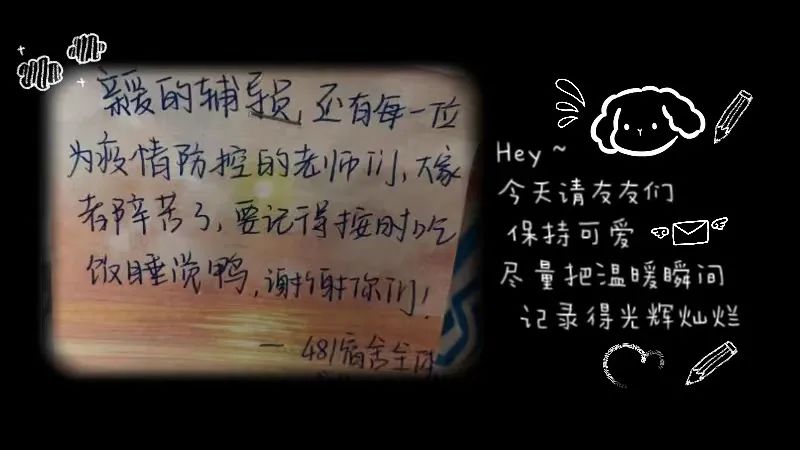 亲爱的辅导员,还有每一位
为疫情防控的老师们,大家
都辛苦了,要记得按时吃
饭睡觉鸭,谢谢你们!
— 481宿舍全体
Hey ~
今天请友友们
保持可爱
尽量把温暖瞬间
记录得光辉灿烂